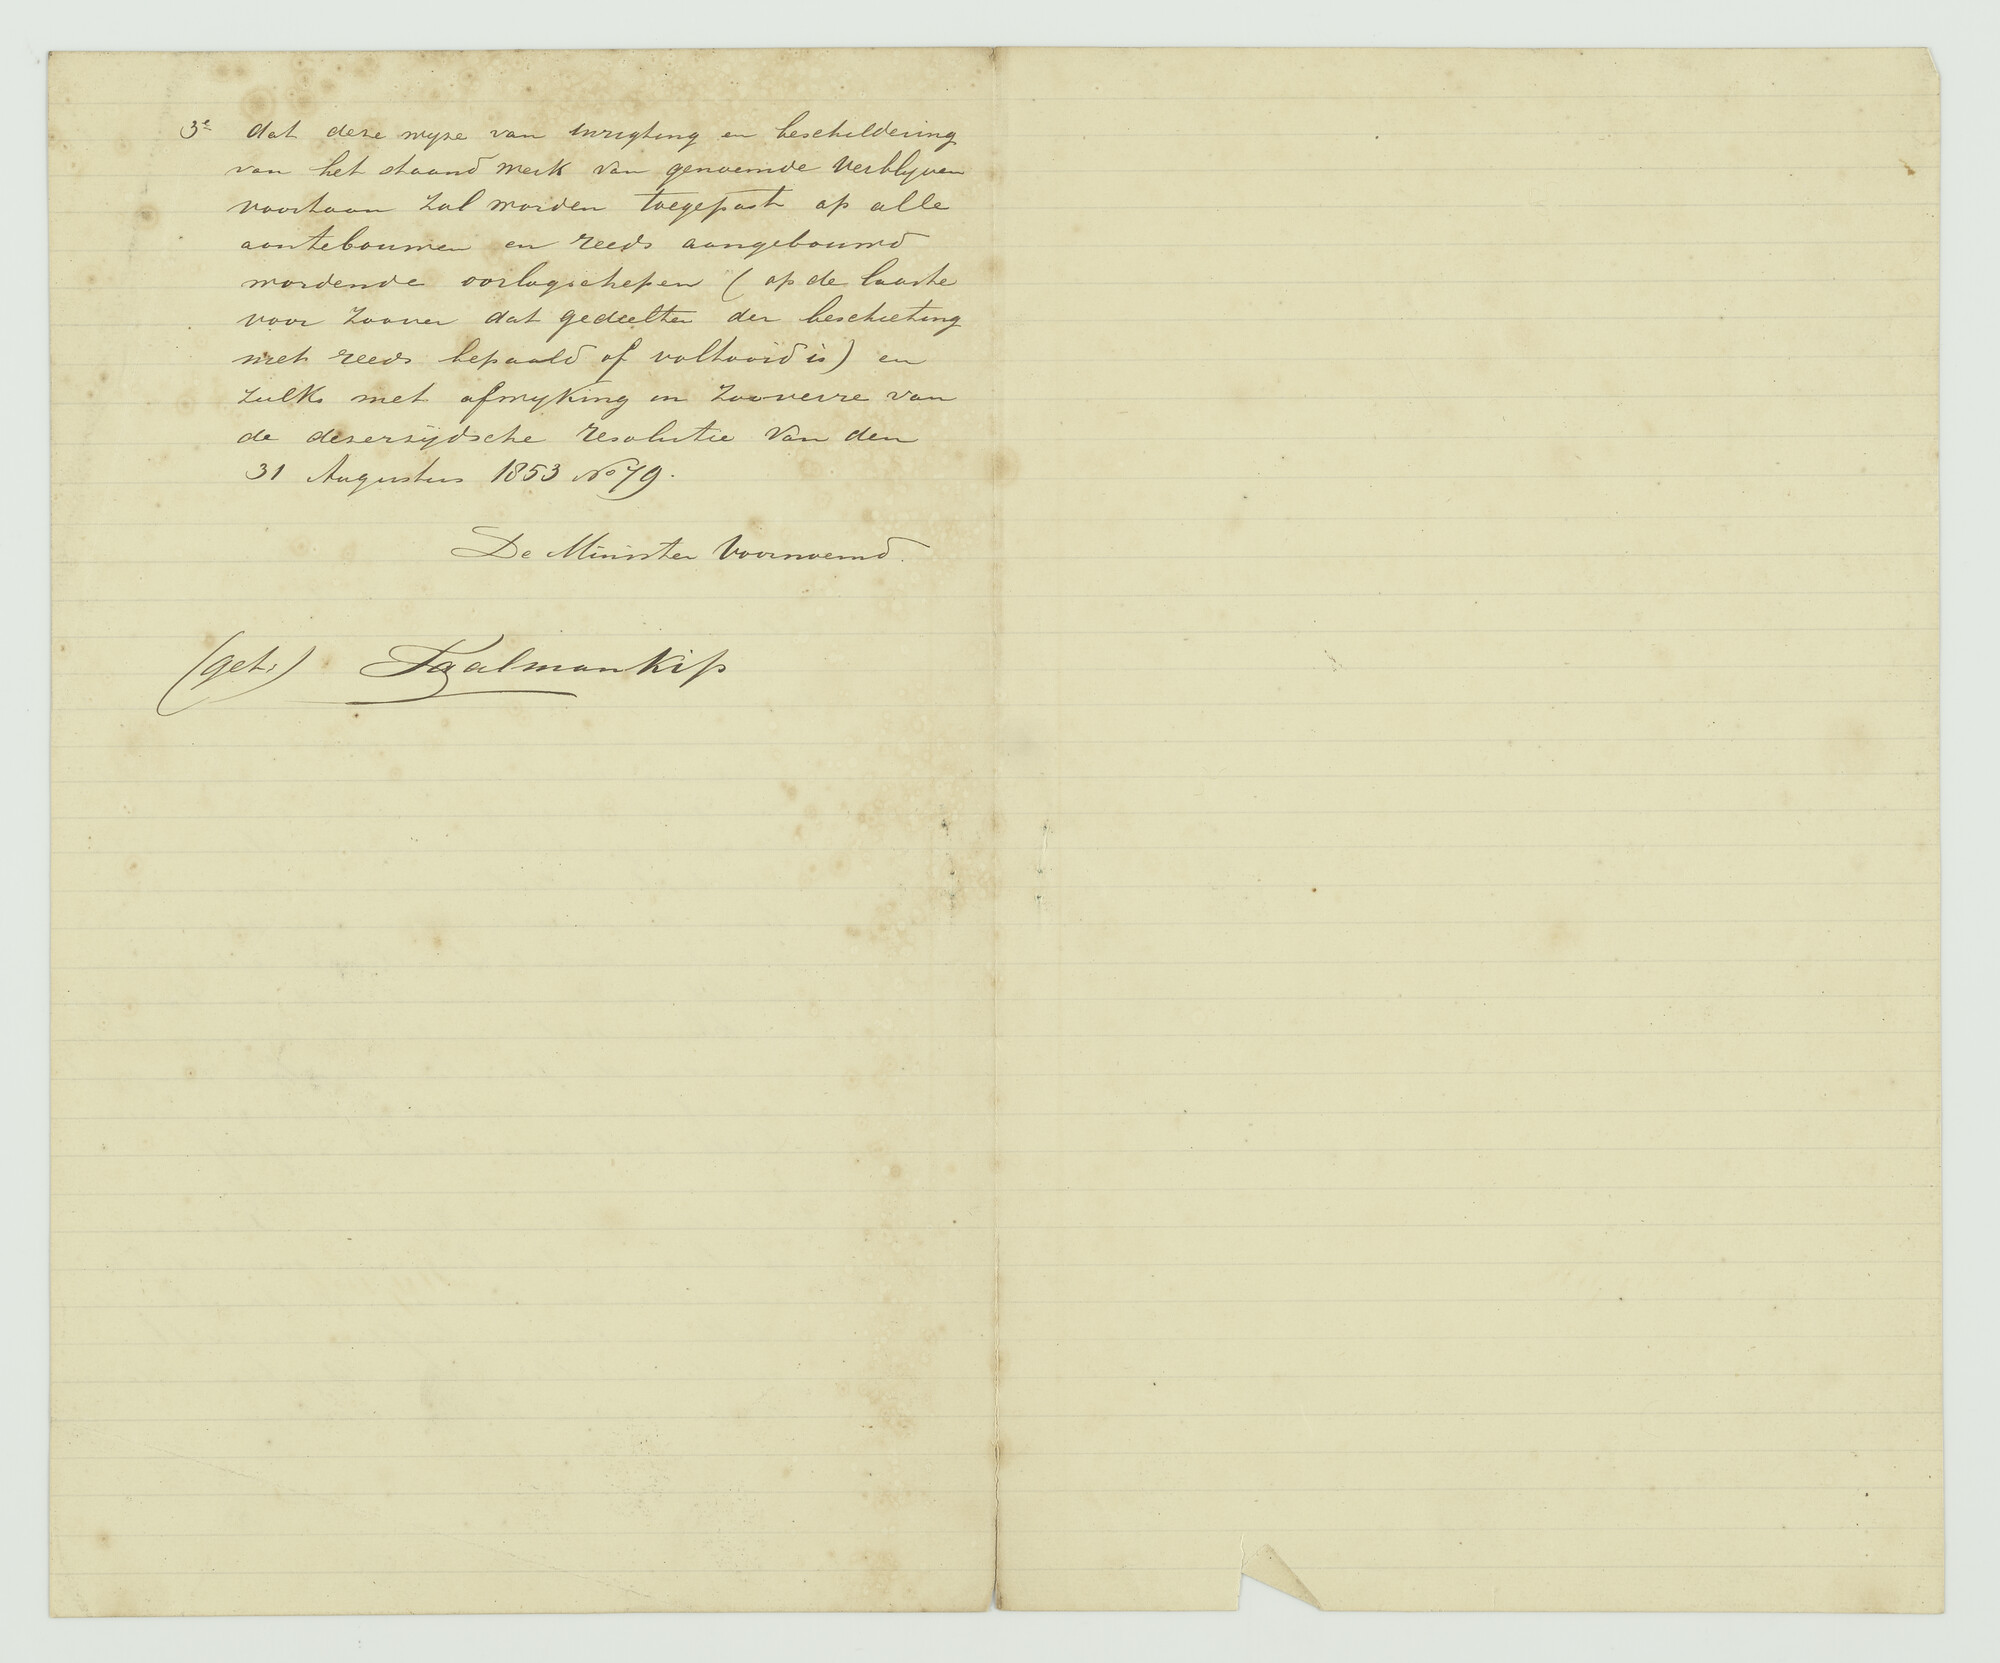 3e dat deze wyze van inrigting en beschildering
van het staand werk van genoemde verblyven
voortaan zal worden toegepast op alle
aantebouwen en reeds aangebouwd
wordende oorlogschepen (op de laatste
voor zoover dat gedeelte der beschieting
niet reeds bepaald of voltooid is) en
zulks met afwyking in zooverre van
de dezerzijdsche resolutie van den
31 Augustus 1853 No 79.
De Minister Voornoemd.
(get.) Taalman Kip